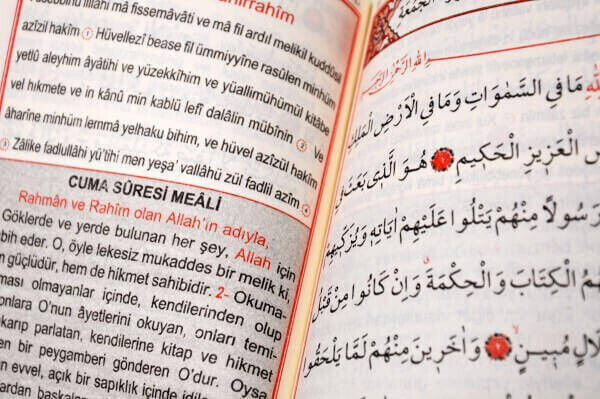 mirrahîm
fissemâvâti ve mâ fil ardıl melikil kuddûsil
azîzil hakîm ① Hüvellezî bease fil ümmiyyîne rasûlen minhüm
yetlû aleyhim âyâtihi ve yüzekkîhim ve yüallimühümül kitâbe
vel hıkmete ve in kânû min kablü lefî dalâlin mübînin ② Ve
âharîne minhüm lemmâ yelhaku bihim, ve hüvel azîzül hakîm
③ Zâlike fadlullâhi yü'tîhi men yeşa' vallâhü zül fadlil azîm ④
CUMA SÛRESİ MEÂLİ
Rahmân ve Rahîm olan Allah'ın adıyla,
Göklerde ve yerde bulunan her şey, Allah için
bih eder. O, öyle lekesiz mukaddes bir melik ki,
güçlüdür, hem de hikmet sahibidir. 2- Okuma-
ması olmayanlar içinde, kendilerinden olup
onlara O'nun âyetlerini okuyan, onları temi-
karıp parlatan, kendilerine kitap ve hikmet
en bir peygamberi gönderen O'dur. Oysa
n evvel, açık bir sapıklık içinde idile
الجمعة
مَا فِي السَّمٰوَاتِ وَمَا فِي الْاَرْضِ الْمَلِكِ
الْعَزِيزِ الْحَكِيمِ ١ هُوَ الَّذِي بَعَثَ فِي
رَسُولًا مِنْهُمْ يَتْلُوا عَلَيْهِمْ اٰيَاتِهِ وَيُزَكِّيهِمْ
الْكِتَابَ وَالْحِكْمَةَ وَاِنْ كَانُوا مِنْ قَبْلُ
لَالٍ مُبِينٍ ٢ وَاٰخَرِينَ مِنْهُمْ لَمَّا يَلْحَقُوا